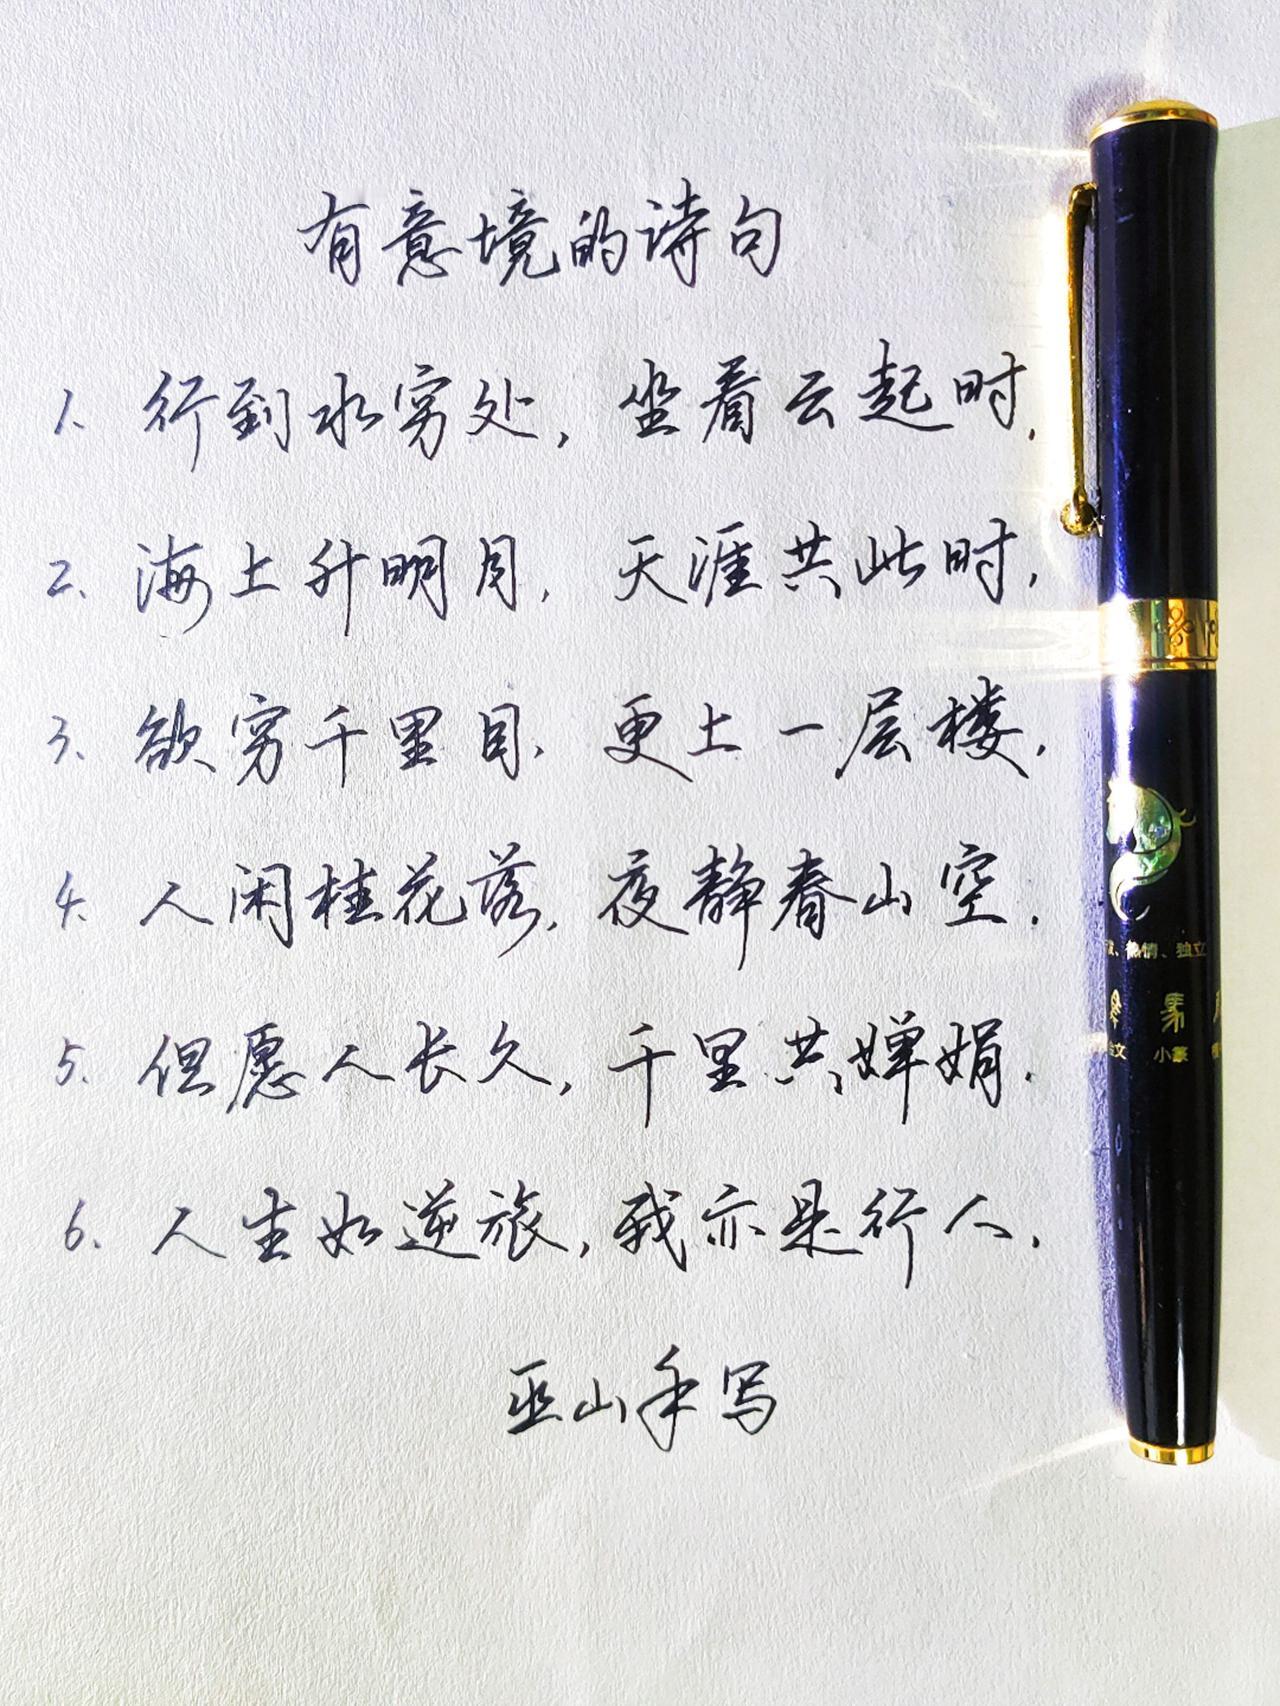 有意境的诗句
1. 行到水穷处，坐看云起时.
2. 海上升明月，天涯共此时.
3. 欲穷千里目，更上一层楼.
4. 人闲桂花落，夜静春山空.
5. 但愿人长久，千里共婵娟.
6. 人生如逆旅，我亦是行人.
巫山手写
、热情、独立
小篆